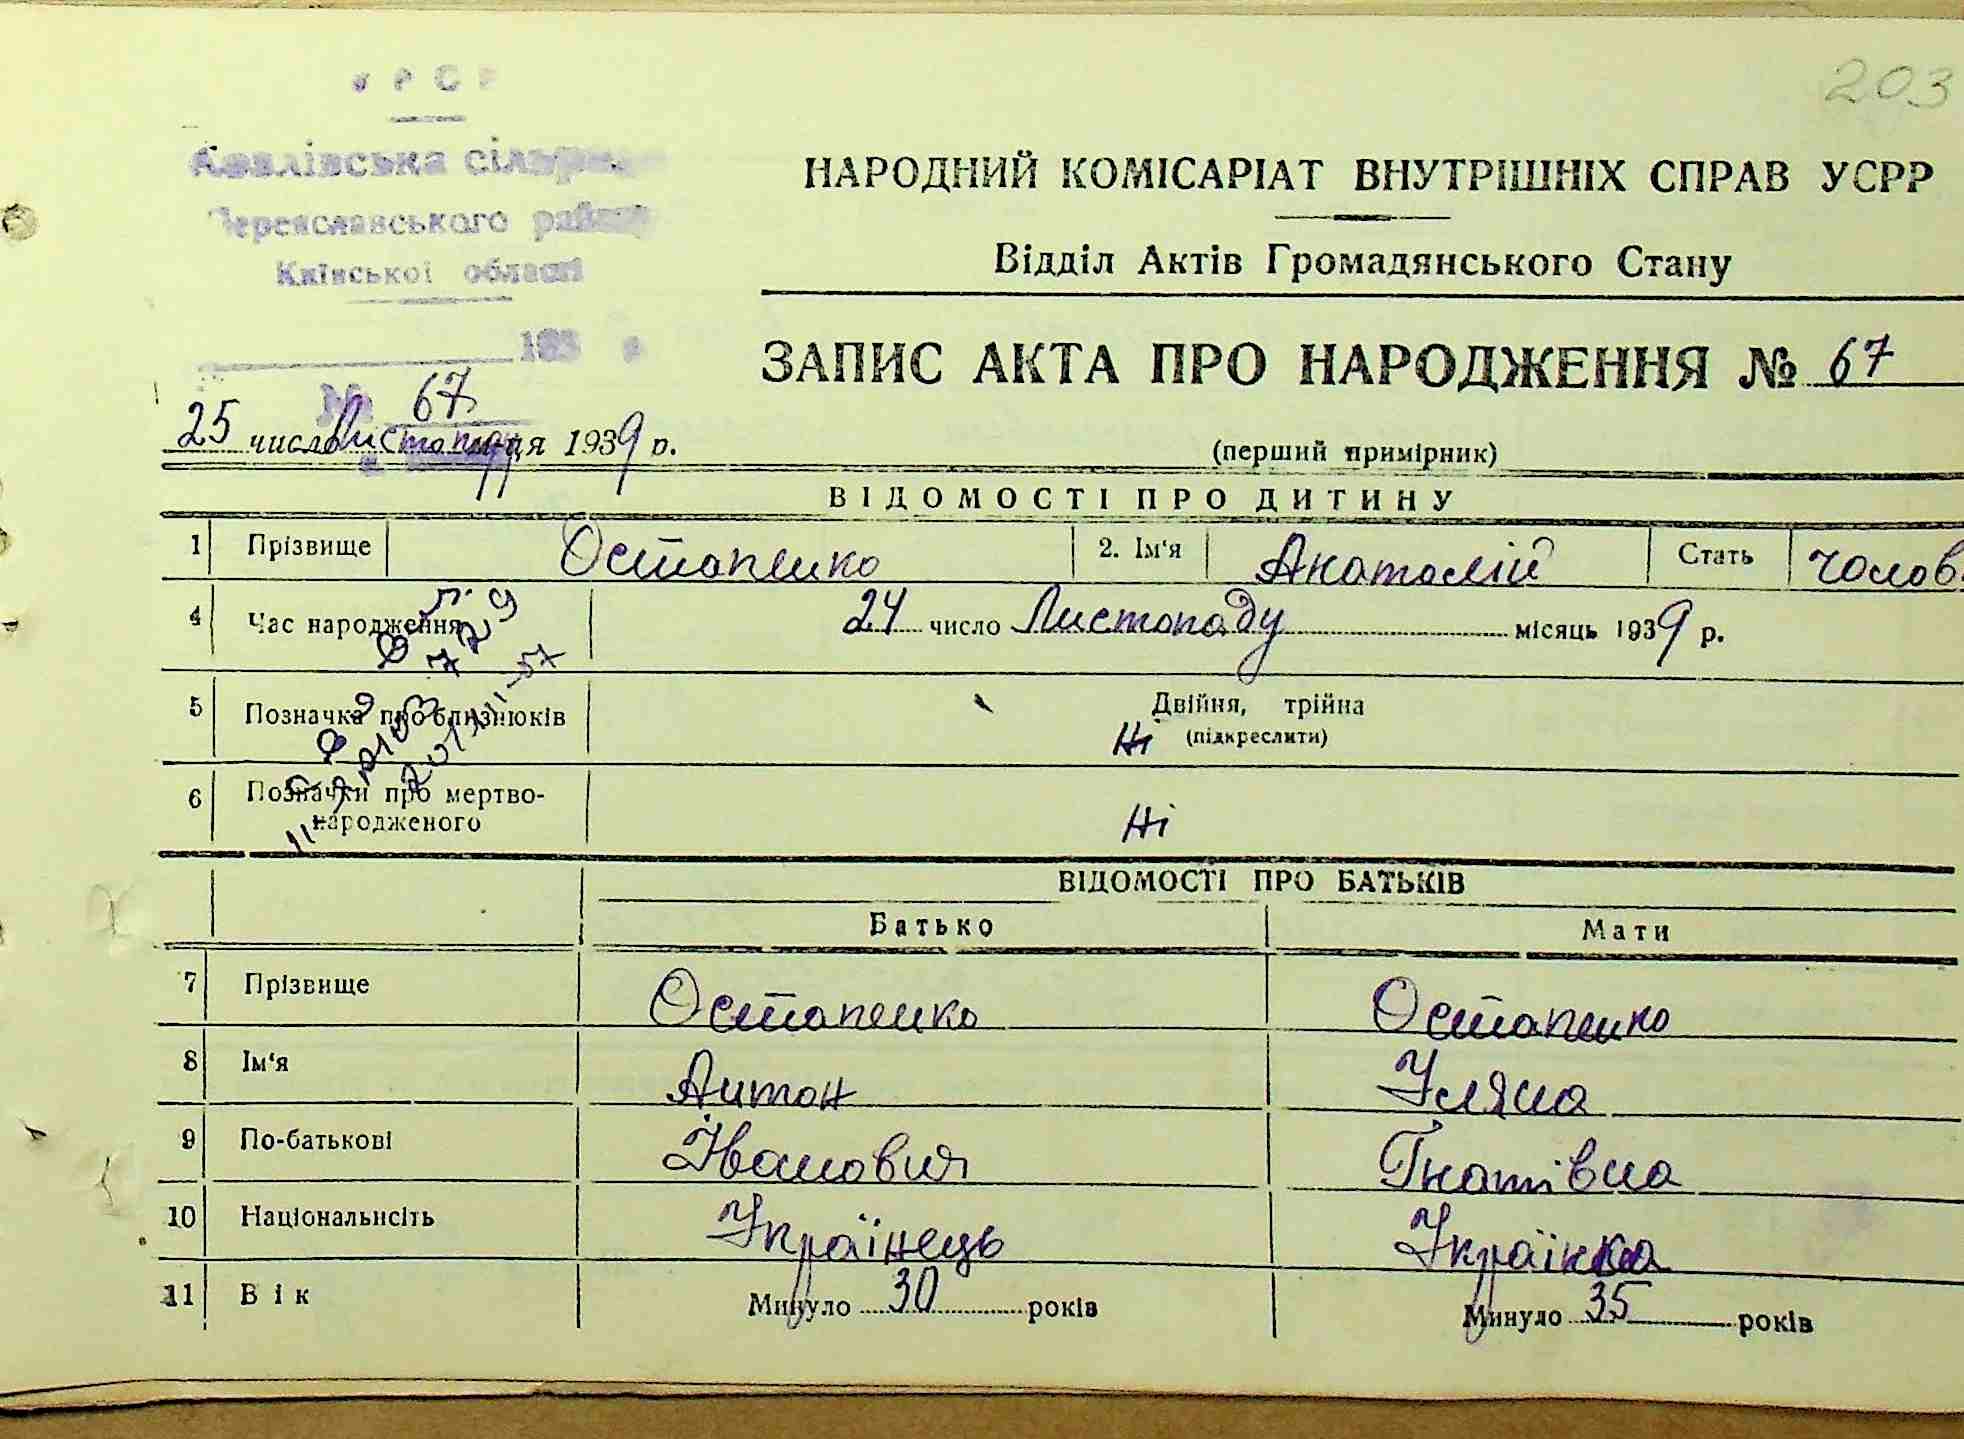 203
УРСР
Ковалівська сільрада
Переяславського району
Київської області
193 р
№ 67
НАРОДНИЙ КОМІСАРІАТ ВНУТРІШНІХ СПРАВ УСРР
Відділ Актів Громадянського Стану
ЗАПИС АКТА ПРО НАРОДЖЕННЯ № 67
25 число Листопад м-ця 1939 р.
(перший примірник)
ВІДОМОСТІ ПРО ДИТИНУ
1 Прізвище Остапенко 2. Ім'я Анатолій Стать чолов.
4 Час народження 24 число Листопаду місяць 1939 р.
5 Позначка про близнюків Двійня, трійна
Ні (підкреслити)
6 Позначки про мертво-
народженого Ні
ВІДОМОСТІ ПРО БАТЬКІВ
Батько Мати
7 Прізвище Остапенко Остапенко
8 Ім'я Антон Уляна
9 По-батькові Іванович Гнатівна
10 Національність Українець Українка
11 Вік Минуло 30 років Минуло 35 років